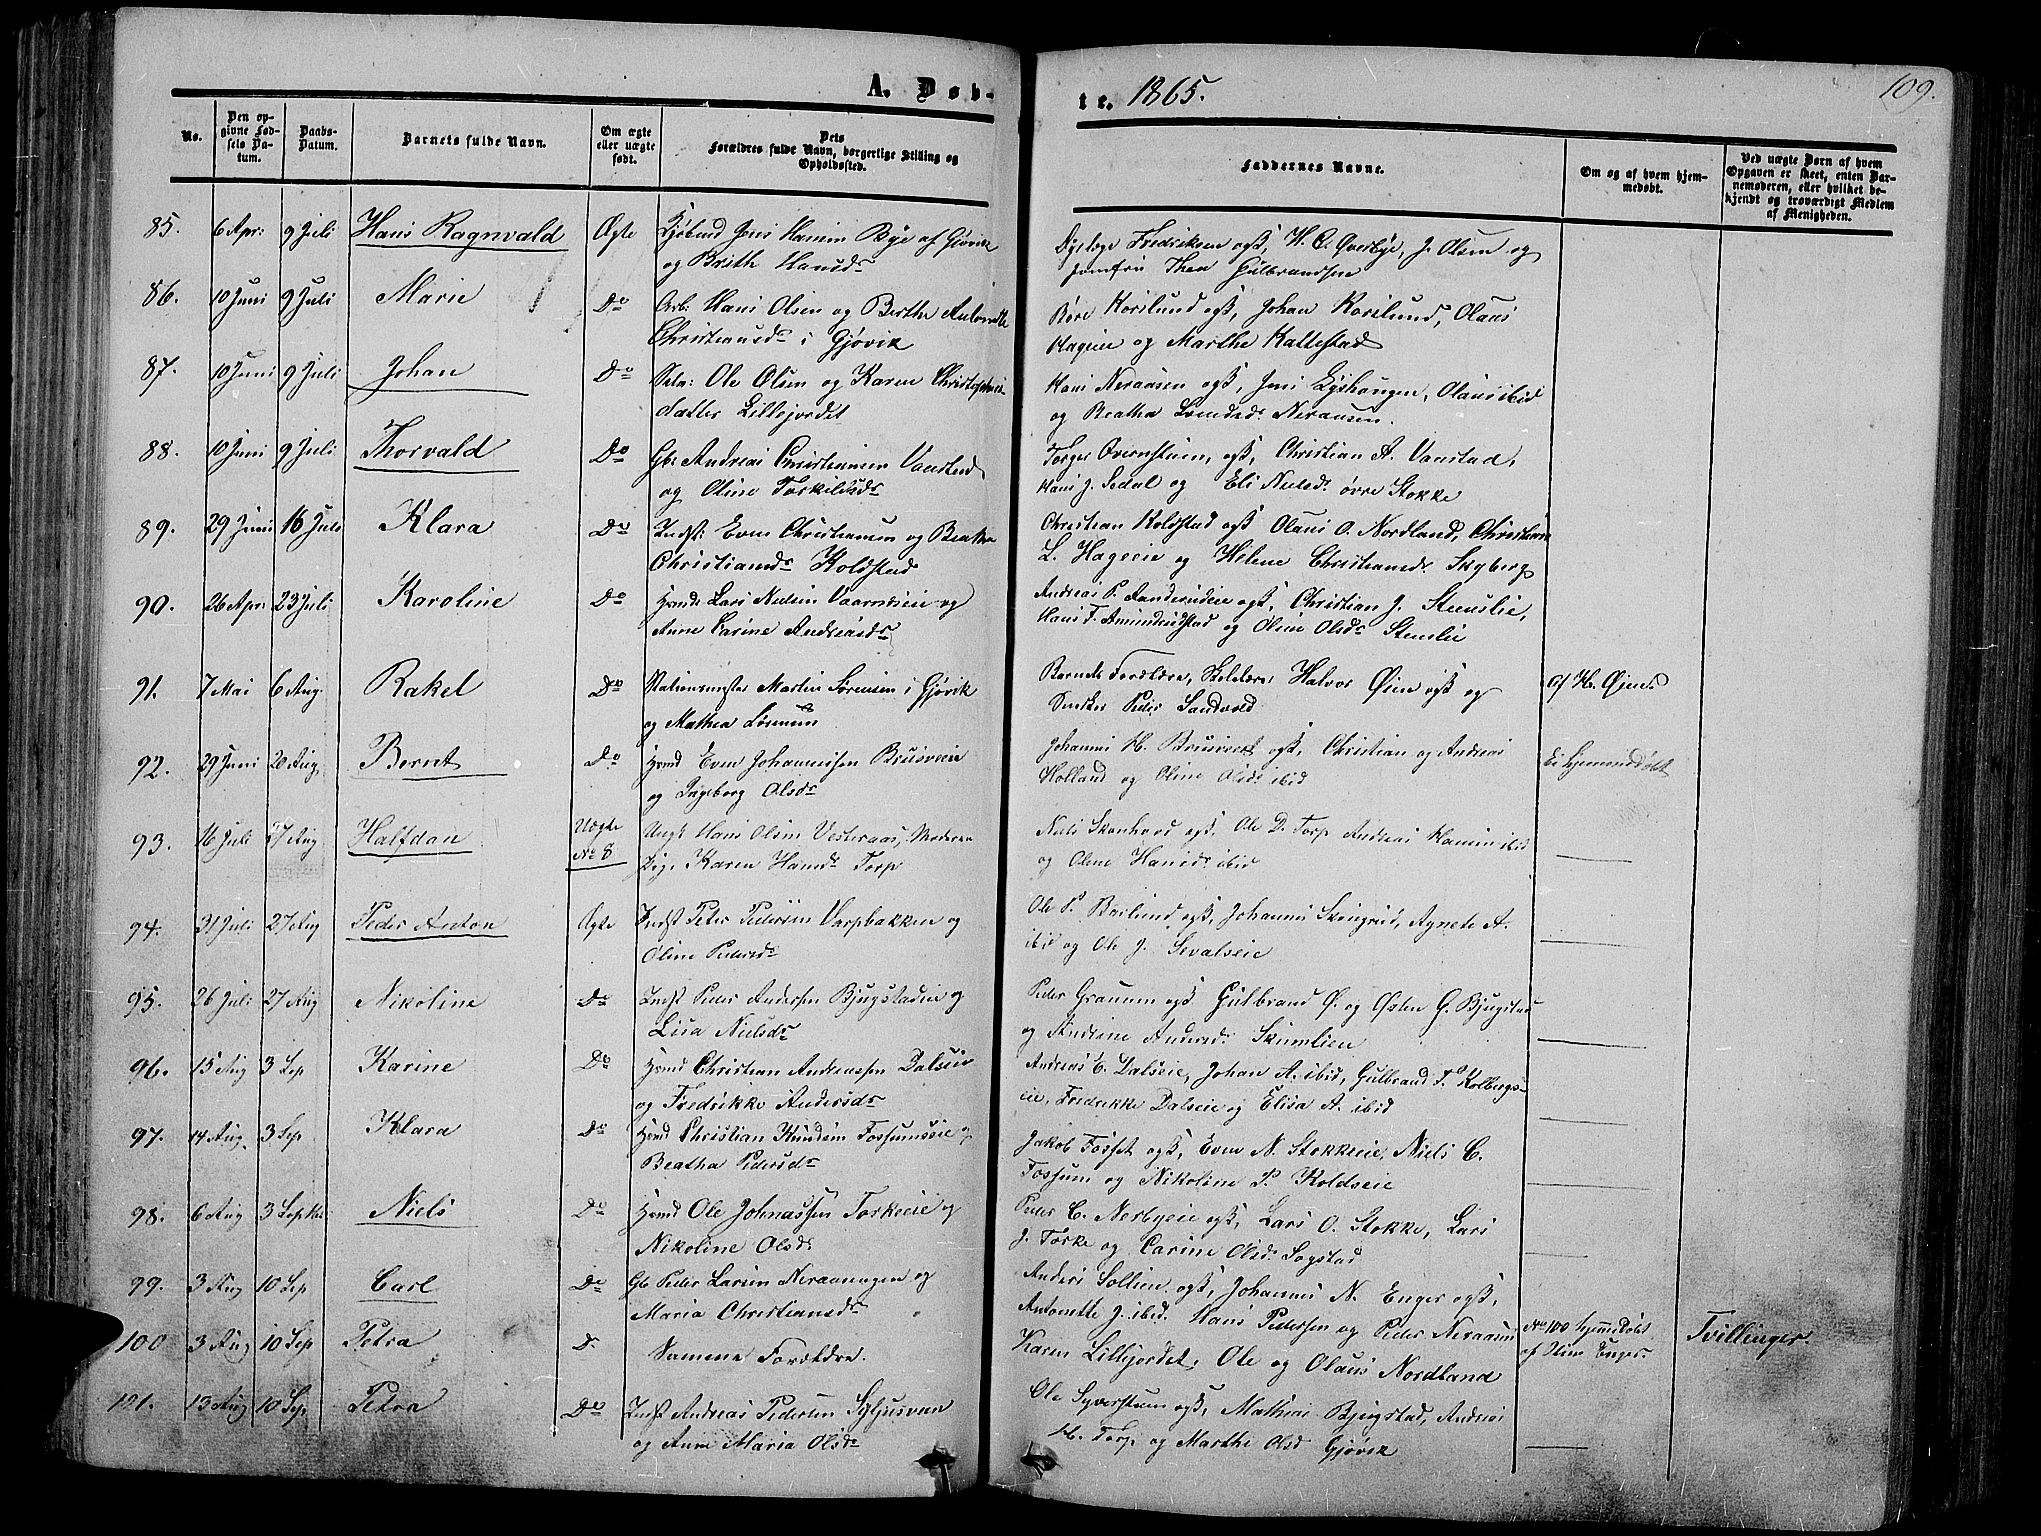 A. Døb-
te. 1865.
109.
No.
Den op-
givne Fød-
sels Da-
tum.
Daabs-
Datum.
Barnets fulde Navn.
Om ægte
eller uægte
født.
Dets
Forældres fulde Navn, borgerlige Stilling og
Opholdssted.
Faddernes Navne.
Om og af hvem hjem-
medøbt.
Ved uægte Børn af hvem
Opgaven er skeet, enten Bar-
nemoderen, eller hvilket be-
kjendt og troværdigt Medlem
af Menigheden.
85. 6 Apr: 9 Juli Hans Ragnvald Ægte Jens Hansen Bye af Gjøvik
og Brith Hansdr
Fredriksen ogs, H. O. Øverbye, J. Olsen og
Jomfru Thea Gulbrandsen
86. 10 Juni 9 Juli Marie Do Arb: Hans Olsen og Berthe Antonette
Christiansdr i Gjøvik
Børe Korslund ogs, Johan Korslund, Olaus
Hageeie og Marthe Kattestad
87. 10 Juni 9 Juli Johan Do Ole Olsen og Karen Christophers-
datter Lillejordet
Hans Neraasen ogs, Jens Lyshaugen, Olaus ibid
og Beatha Neraasen.
88. 10 Juni 9 Juli Thorvald Do Gb: Andreas Christiansen Vanstad
og Oline Torkildsdr
Torger ogs, Christian A. Vanstad,
Hans J. Sedal og Eli Nielsdr øvre Stokke
89. 29 Juni 16 Juli Klara Do Indst: Even Christiansen og Beathe
Christiansdr Koldstad
Christian Koldstad ogs Olaus O. Nordland, Christian
L. Hageeie og Helene Christiansdr Skyberg
90. 26 Apr: 23 Juli Karoline Do Hmd: Lars Nielsen og
Anne Carine Andreasdr
Andreas P. ogs, Christian J. Stenslie,
Hans F. Amundrudstad og Oline Olsdr Stenslie
91. 7 Mai 6 Aug. Rakel Do Martin Sørensen i Gjøvik
og Mathea Sørensen
Barnets Forældre, Skolelærer Halvor Øien ogs og
Snedker Peder Sandvold
af H. Øiens
92. 29 Juni 20 Aug. Bernt Do Hmd Even Johannesen Brusveen
og Ingeborg Olsdr
Johannes H. Brusveen ogs, Christian og Andreas
Holland og Oline Olsdr ibid
Ei hjemmedøbt
93. 16 Juli 27 Aug Halfdan Uægte
No 8
Ungk Hans Olsen Vesteraas, Moderen
Pige Karen Hansdr Torp
Niels Skonhovd ogs, Ole D. Torp Andreas Hansen ibid
og Olene Hansdr ibid
94. 31 Juli 27 Aug Peder Anton Ægte Indst Peter Pedersen Varpbakken og
Oline Pedersdr
Ole P. Barlund ogs, Johannes Skringrud, Agnete A.
ibid og Ole J. Sevalseie
95. 26 Juli 27 Aug Nikoline Do Indst Peder Andersen Bjugstadeie og
Lisa Nielsdr
Peder Graunm ogs Gulbrand Ø. og Østen G. Bjugstad
og Andrine Andersdr Skumlien
96. 15 Aug 3 Sep Karine Do Hmd Christian Andreassen Dalseie
og Fredrikke Andersdr
Andreas C. Dalseie, Johan A. ibid, Gulbrand T. Kolbergs-
eie, Fredrikke Dalseie og Elisa A. ibid
97. 14 Aug. 3 Sep. Klara Do Hmd Christian Knudsen Fossumseie og
Beatha Pedersdr
Jakob Fosset ogs, Even N. Stokkeeie, Niels C.
Fossum og Nikoline P. Koldseie
98. 6 Aug 3 Septbr Niels Do Hmd Ole Johnassen Torkeeie og
Nikoline Olsdr
Peder C. Nerbyeie ogs, Lars O. Stokke, Lars
J. Torke og Carine Olsdr Sogstad
99. 3 Aug 10 Sep Carl Do Gb Peder Larsen Neraaungen og
Maria Christiansdr
Anders Sollien ogs, Johannes N. Enger ogs,
Antonette J. ibid. Hans Pedersen og Peder Neraasen
100 3 Aug 10 Sep Petra D. Samme Forældre.
Karen Lillejordet, Ole og Olaus Nordland
No 100 hjemmedøbt
af Oline Enger.
Tvillinger.
101. 13 Aug 10 Sep Petra Do Indst Andreas Pedersen Syljusveen
og Anne Maria Olsdr
Ole Syverstuen ogs, Mathias Bjugstad, Andreas
H. Torp og Marthe Olsd Gjøvik